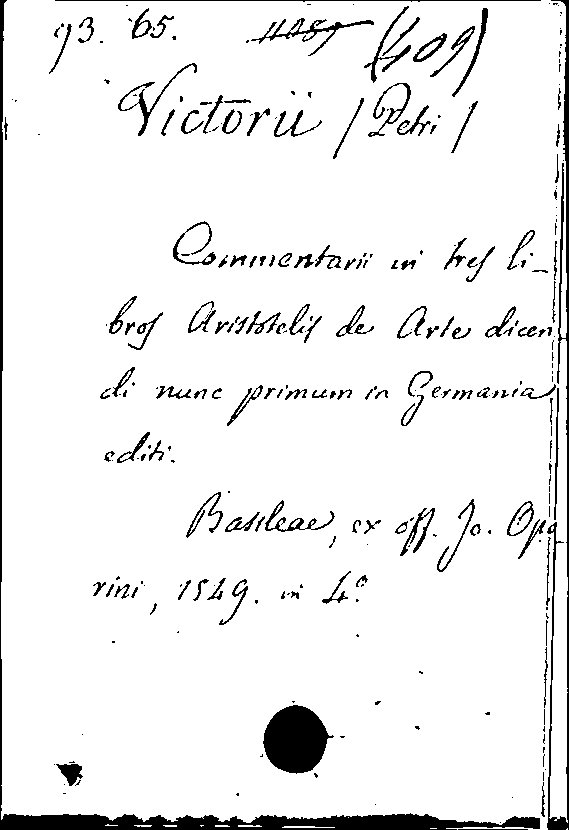 93. 65. 11089 (409)
Victorii / Petri /
Commentarii in tres li-
bros Aristotelis de Arte dicen
di nunc primum in Germania
editi.
Basileae, ex off. Jo. Opo
rini, 1549. in 4º